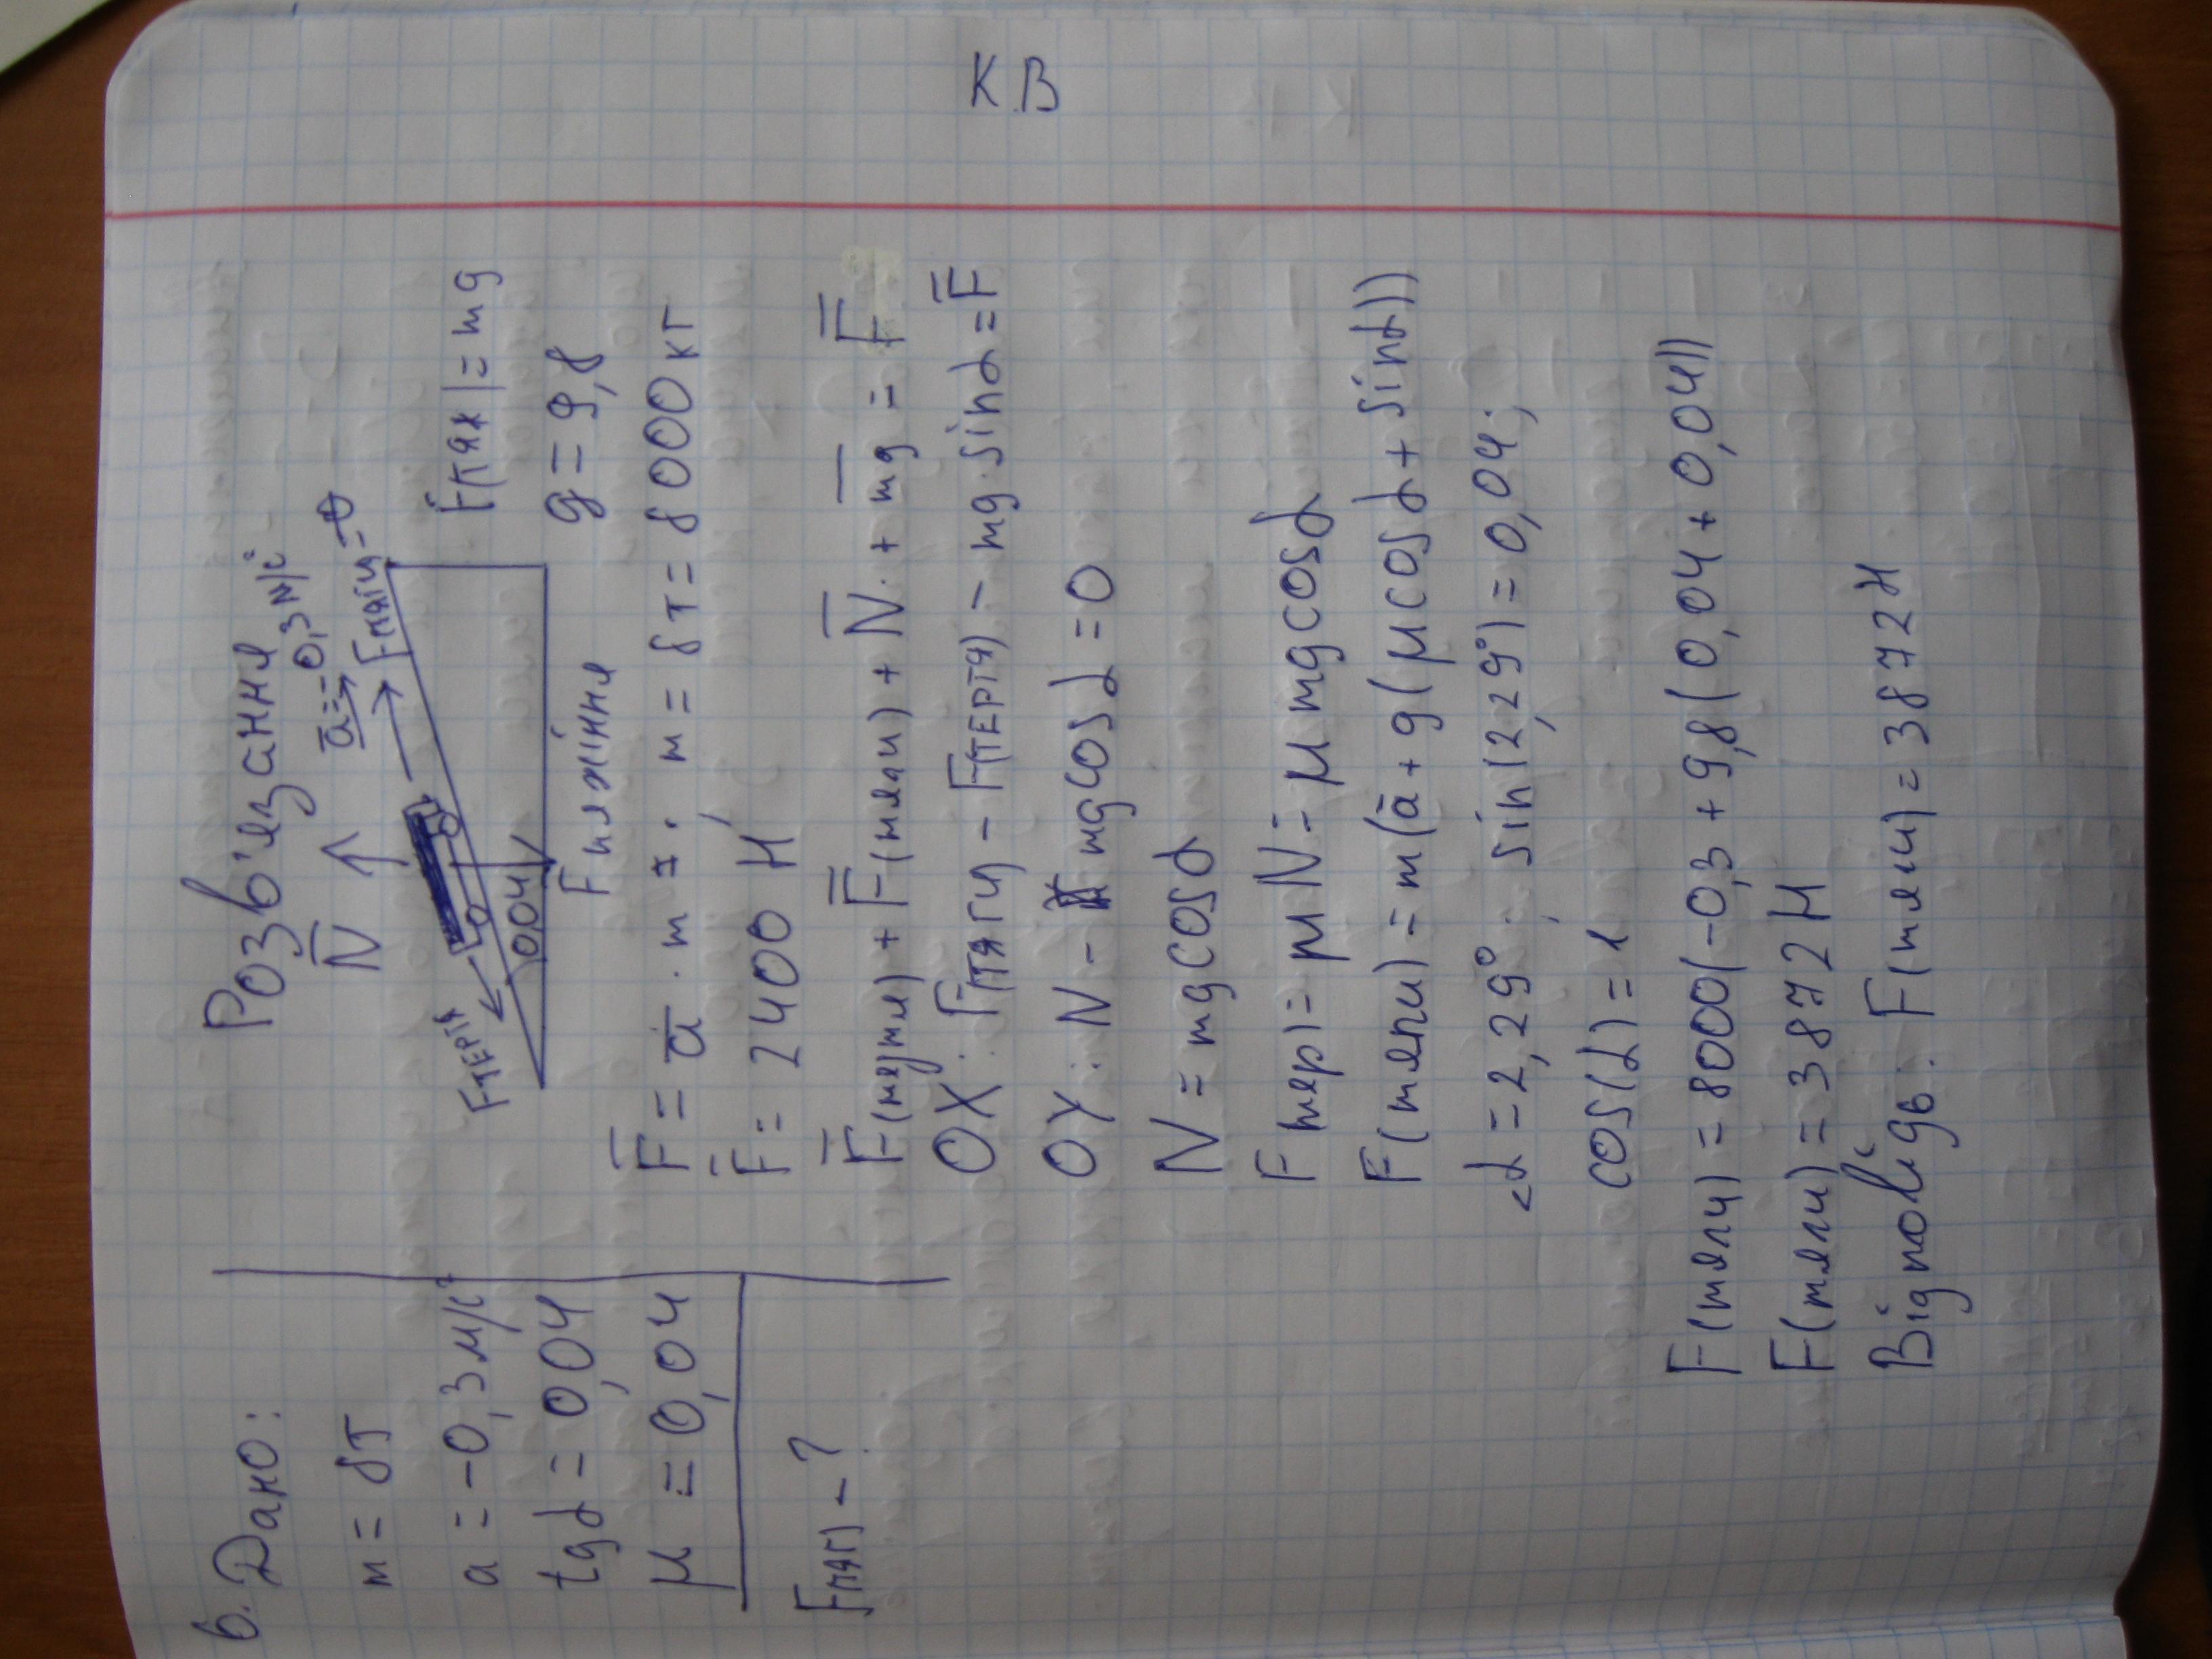 6. Дано:
m = 8т
a = -0,3 м/с²
tgα = 0,04
μ = 0,04
Fтяг) - ?
Розв'язання
N
a = -0,3 м/с²
Fтяги
Fтертя
0,04
Fтяжіння
F(тяж) = mg
g = 9,8
F = a · m ; m = 8т = 8000 кг
F = 2400 Н
F(тертя) + F(тяги) + N + mg = F
OX: F(тяги) - F(тертя) - mg·sinα = F
OY: N - mgcosα = 0
N = mgcosα
Fтер) = μN = μmgcosα
F(тяги) = m(a + g(μcosα + sinα))
∠α = 2,29° ; sin(2,29°) = 0,04 ;
cos(α) = 1
F(тяги) = 8000(-0,3 + 9,8(0,04 + 0,04))
F(тяги) = 3872 Н
Відповідь: F(тяги) = 3872 Н
КВ